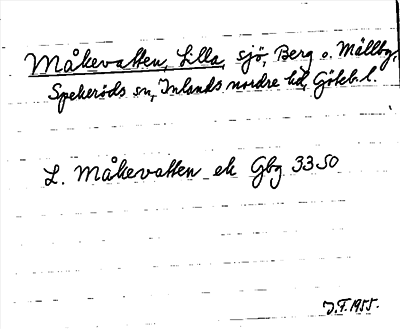 Måkevatten, Lilla, sjö, Berg o. Mällby,
Spekeröds sn, Inlands nordre hd, Göteb. l.
L. Måkevatten ek Gbg 33 SO
J.F. 1955.